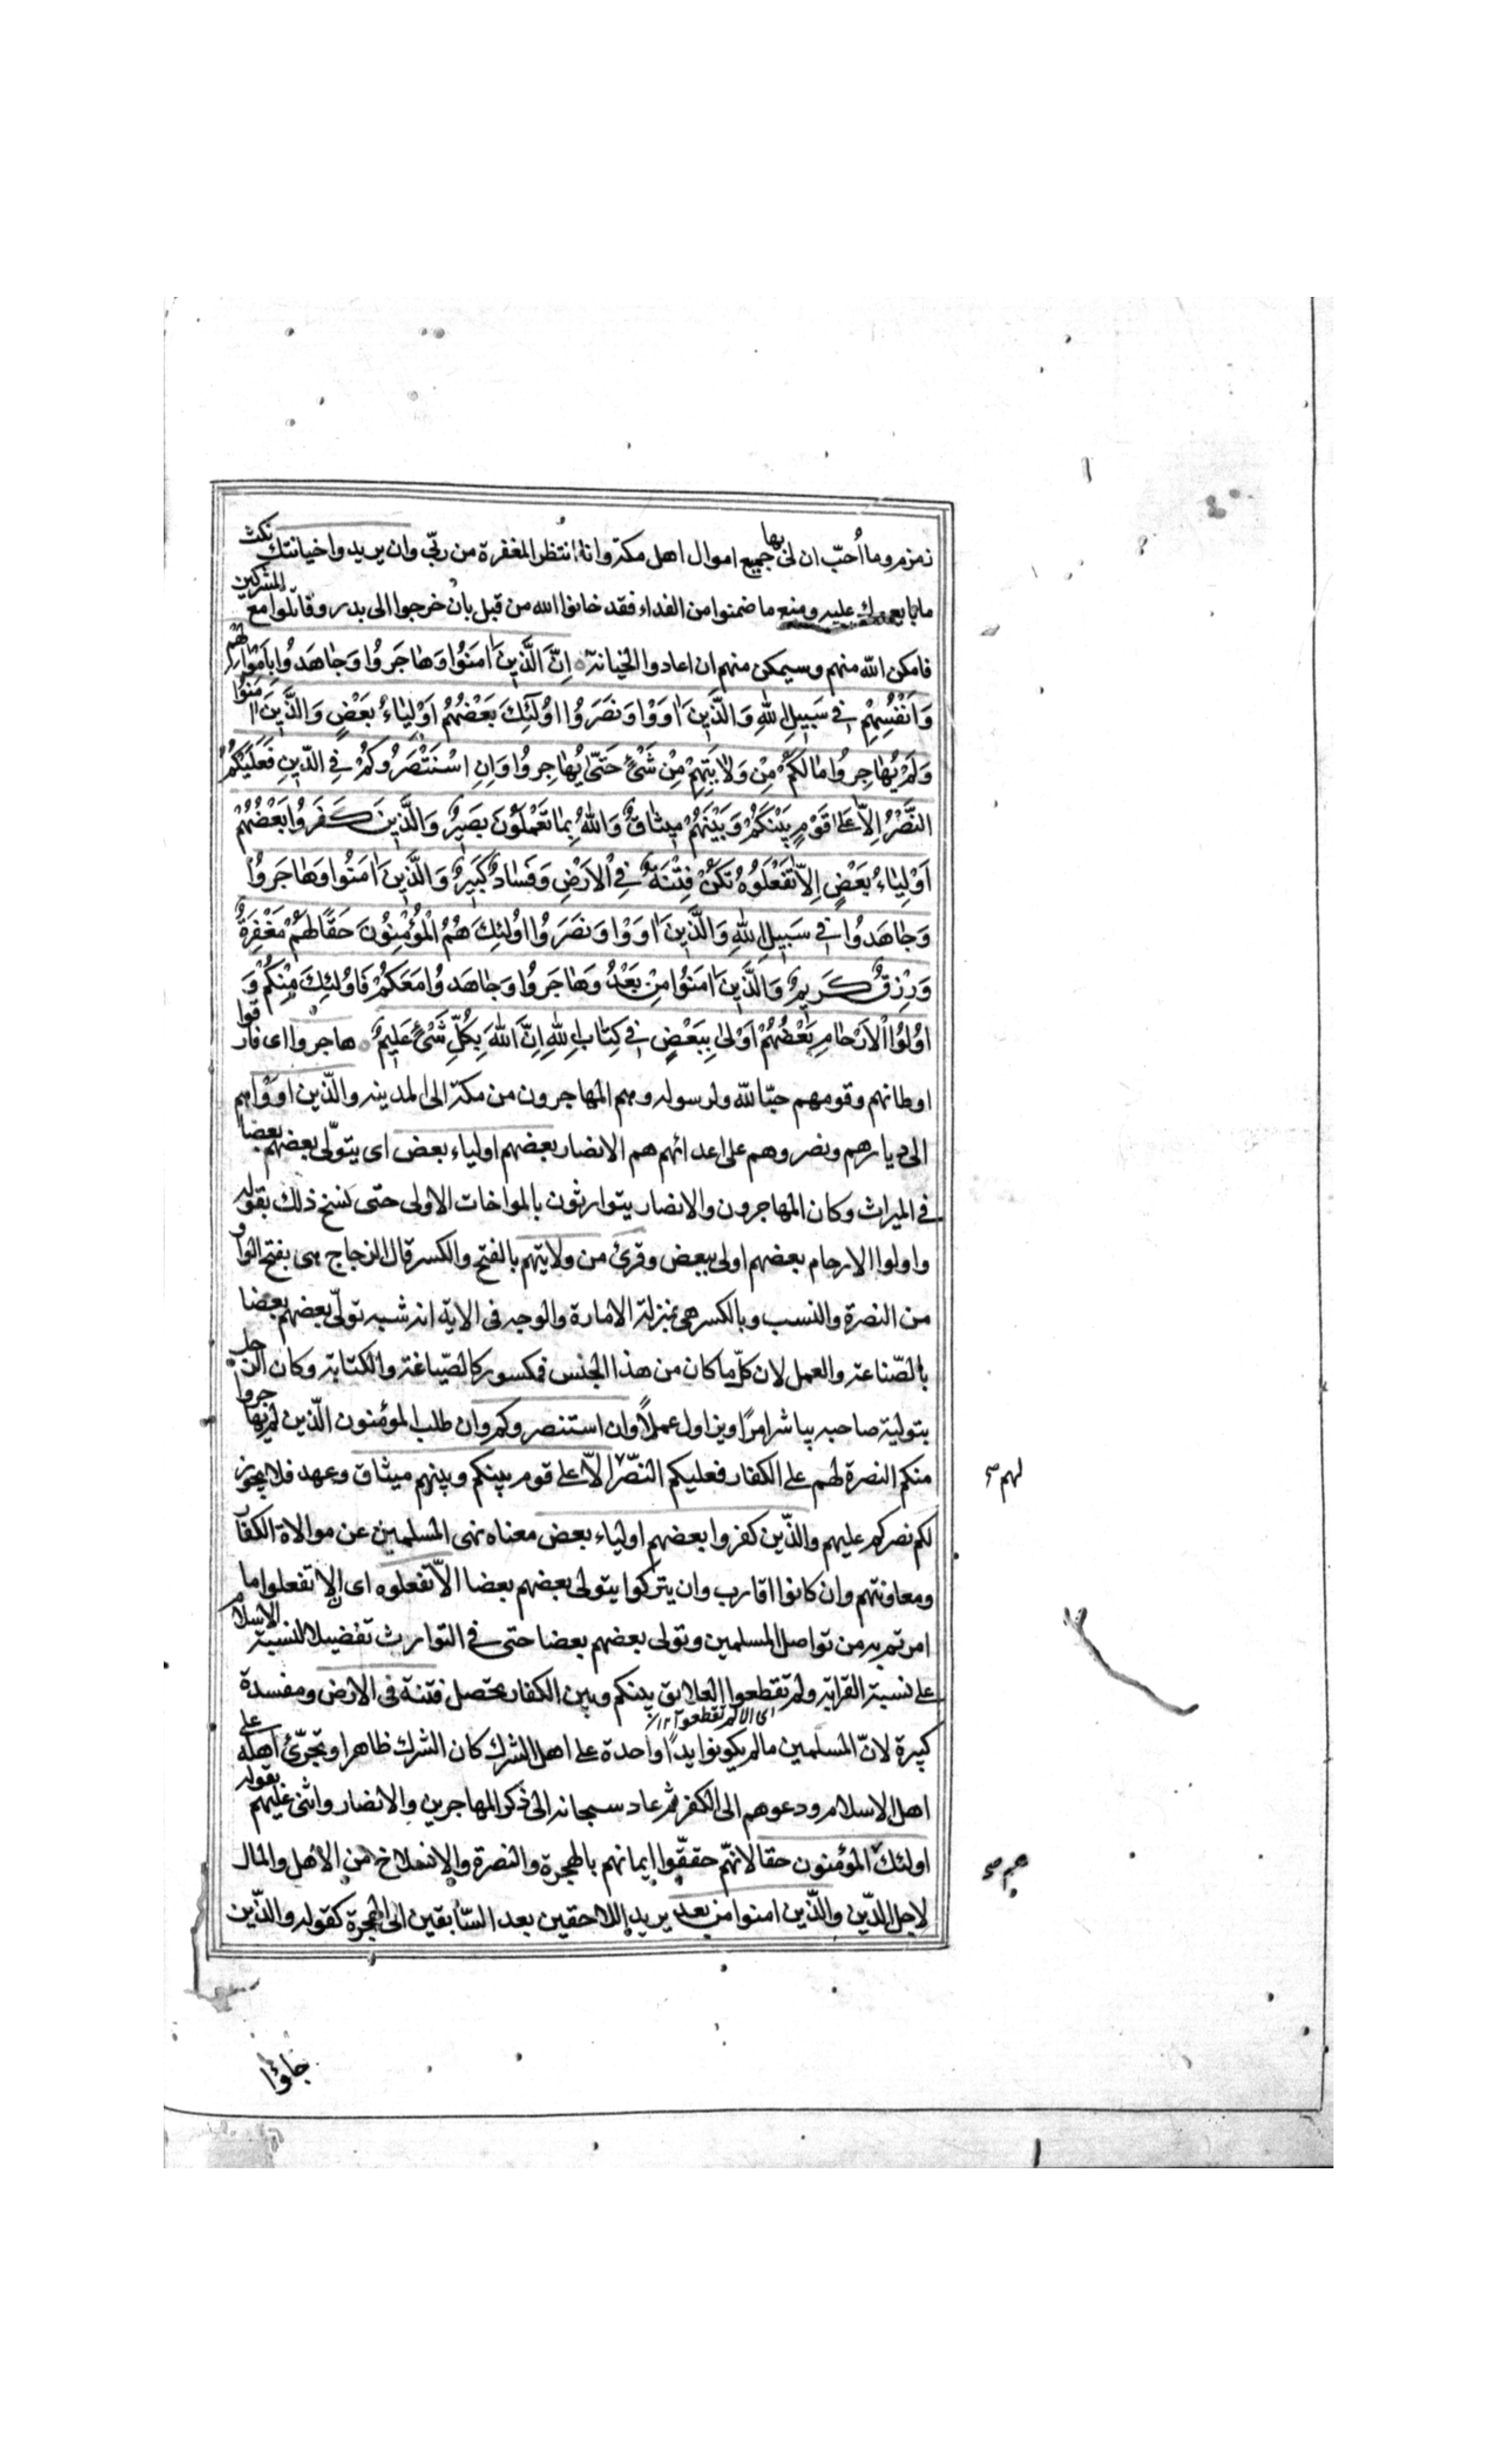 زمزم وما أُحبّ ان لى بها جميع اموال اهل مكة وانا انتظر المغفرة من ربّى وان يريدوا خيانتك نكث
ما بايعوك عليه ومنع ما ضمنوا من الفداء فقد خانوا الله من قبل بان خرجوا الى بدر وقاتلوا مع المشركين
فامكن الله منهم وسيمكن منهم ان اعادوا الخيانة اِنَّ الَّذينَ اٰمَنُوا وَهٰاجَرُوا وَجٰاهَدُوا بِاَمْوٰالِهِمْ
وَاَنْفُسِهِمْ فى سَبيلِ اللهِ وَالَّذينَ اٰوَوْا وَنَصَرُوا اُولٰئِكَ بَعْضُهُمْ اَوْلِيٰاءُ بَعْضٍ وَالَّذينَ اٰمَنُوا
وَلَمْ يُهٰاجِرُوا مٰا لَكُمْ مِنْ وَلٰايَتِهِمْ مِنْ شَىْءٍ حَتّىٰ يُهٰاجِرُوا وَاِنِ اسْتَنْصَرُوكُمْ فِى الدّينِ فَعَلَيْكُمُ
النَّصْرُ اِلّٰا عَلىٰ قَوْمٍ بَيْنَكُمْ وَبَيْنَهُمْ ميثٰاقٌ وَاللهُ بِمٰا تَعْمَلُونَ بَصيرٌ وَالَّذينَ كَفَرُوا بَعْضُهُمْ
اَوْلِيٰاءُ بَعْضٍ اِلّٰا تَفْعَلُوهُ تَكُنْ فِتْنَةٌ فِى الْاَرْضِ وَفَسٰادٌ كَبيرٌ وَالَّذينَ اٰمَنُوا وَهٰاجَرُوا
وَجٰاهَدُوا فى سَبيلِ اللهِ وَالَّذينَ اٰوَوْا وَنَصَرُوا اُولٰئِكَ هُمُ الْمُؤْمِنُونَ حَقًّا لَهُمْ مَغْفِرَةٌ
وَرِزْقٌ كَريمٌ وَالَّذينَ اٰمَنُوا مِنْ بَعْدُ وَهٰاجَرُوا وَجٰاهَدُوا مَعَكُمْ فَاُولٰئِكَ مِنْكُمْ وَ
اُولُوا الْاَرْحٰامِ بَعْضُهُمْ اَوْلىٰ بِبَعْضٍ فى كِتٰابِ اللهِ اِنَّ اللهَ بِكُلِّ شَىْءٍ عَليمٌ هاجروا اى فارقوا
اوطانهم وقومهم حبّا لله ولرسوله وهم المهاجرون من مكة الى المدينه والّذين اووا هم
الى ديارهم ونصروهم على اعدائهم هم الانصار بعضهم اولياء بعض اى يتولّى بعضهم بعضا
فى الميراث وكان المهاجرون والانصار يتوارثون بالمواخات الاولى حتى نسخ ذلك بقوله
واولوا الارحام بعضهم اولى ببعض وقرئ من ولايتهم بالفتح والكسر قال الزجاج هى بفتح الواو
من النصرة والنسب وبالكسر هى بمنزلة الامارة والوجه فى الاية انه شبه تولّى بعضهم بعضا
بالصّناعة والعمل لان كلّ ما كان من هذا الجنس فمكسور كالصّياغة والكتابة وكان الرجل
بتوليته صاحبه يباشر امرًا ويزاول عملاً وان استنصروكم وان طلب المؤمنون الّذين لم يهاجروا
منكم النصرة لهم على الكفار فعليكم النصر الّا على قوم بينكم وبينهم ميثاق وعهد فلا يجوز
لهم صح
لكم نصركم عليهم والّذين كفروا بعضهم اولياء بعض معناه نهى المسلمين عن موالاة الكفار
ومعاونتهم وان كانوا اقارب وان يتركوا يتولى بعضهم بعضا الّا تفعلوه اى الا تفعلوا ما
امرتم به من تواصل المسلمين وتولى بعضهم بعضا حتى فى التوارث تفضيلا لنسبة الاسلام
على نسبة القرابة ولم تقطعوا العلايق بينكم وبين الكفار تحصل فتنة فى الارض ومفسدة
اى الا لم تقطعوا ١٢
كبيرة لانّ المسلمين ما لم يكونوا يدًا واحدة على اهل الشرك كان الشرك ظاهرا وتجرّئ اهله على
اهل الاسلام ودعوهم الى الكفر ثم عاد سبحانه الى ذكر المهاجرين والانصار واثنى عليهم بقوله
اولئك المؤمنون حقا لانّهم حققّوا ايمانهم بالهجرة والنصرة والانسلاخ من الأهل والمال
هم صح
لاجل الدّين والّذين امنوا من بعد يريد اللاحقين بعد السّابقين الى الهجرة كقوله والّذين
جاؤا